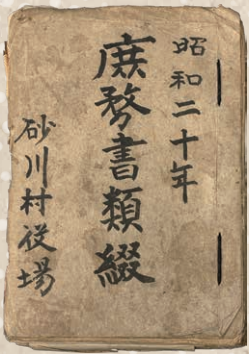 昭和二十年
庶務書類綴
砂川村役場